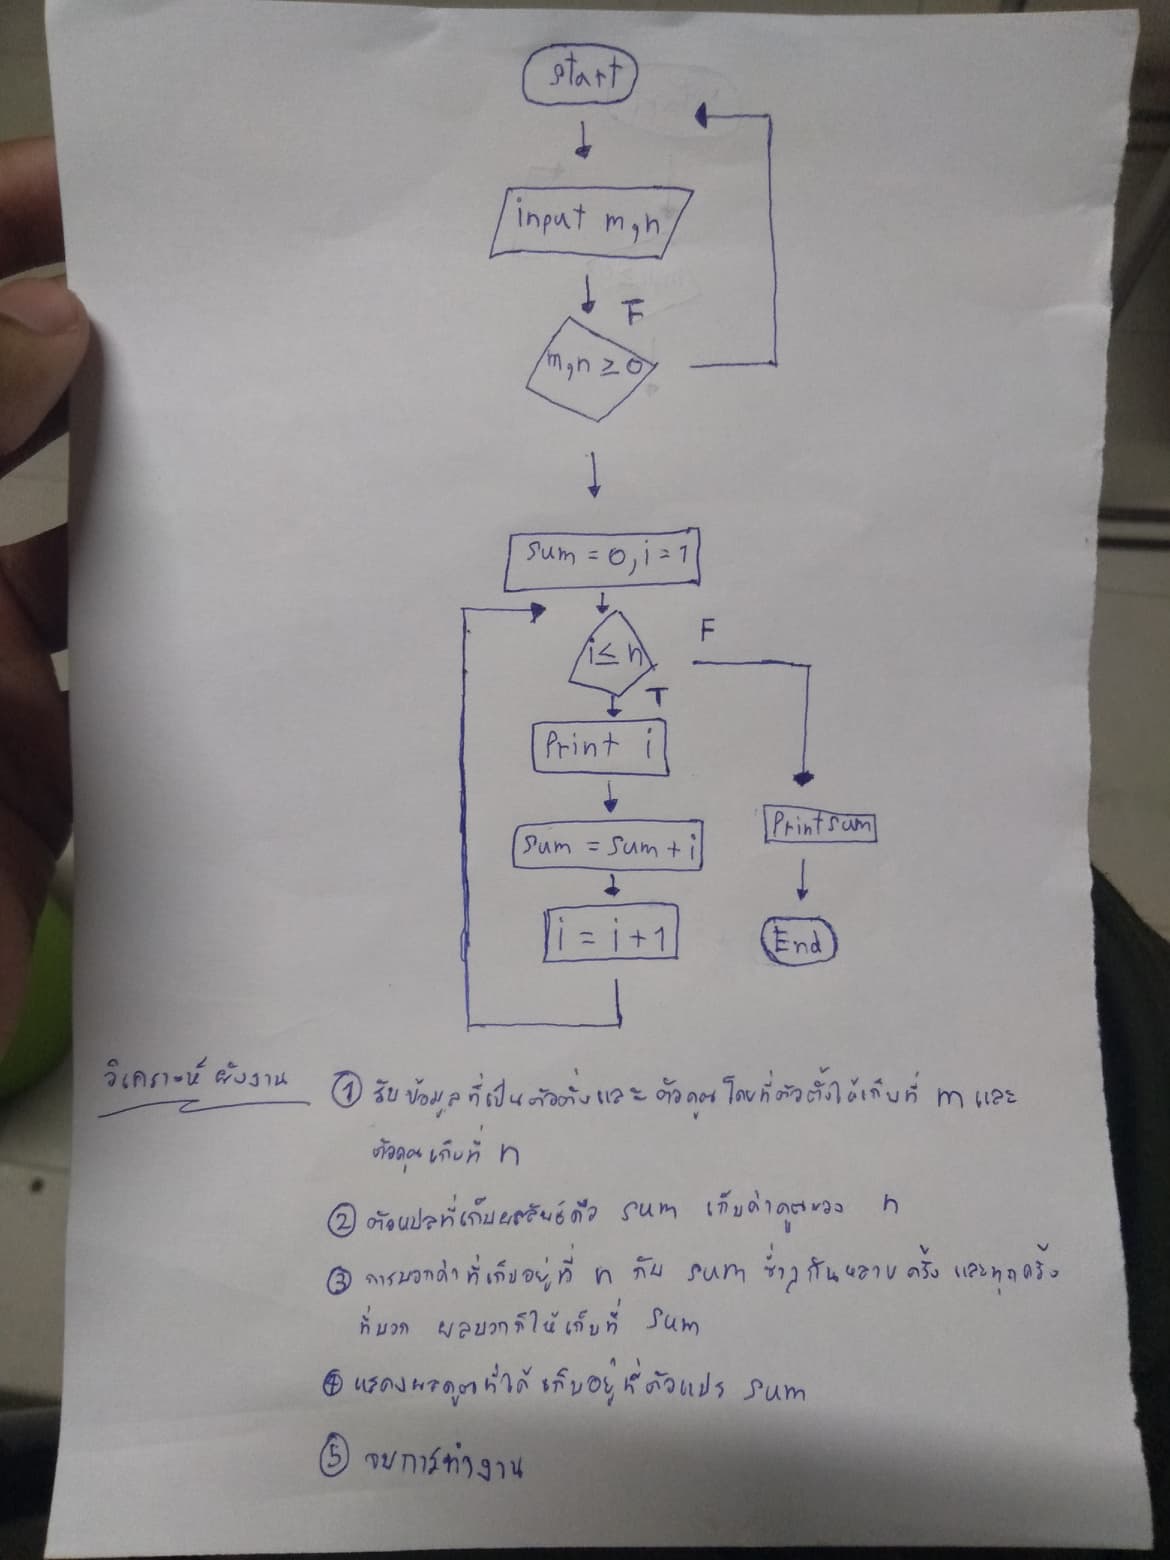 start
input m,n
F
m,n ≥ 0
sum = 0, i = 1
i ≤ n
F
T
Print i
sum = sum + i
Print sum
i = i + 1
End
วิเคราะห์ ผังงาน
① รับข้อมูลที่เป็นตัวตั้งและ ตัวคูณโดยที่ตัวตั้งให้เก็บที่ m และ
ตัวคูณเก็บที่ n
② ตัวแปลที่เก็บผลลัพธ์คือ sum เก็บค่าคูณของ n
③ การบวกค่าที่เก็บอยู่ที่ n กับ sum ซ้ำๆกันหลายครั้ง และทุกครั้ง
ที่บวก ผลบวกก็ให้เก็บที่ sum
④ แสดงผลคูณที่ได้ เก็บอยู่ที่ตัวแปร sum
⑤ จบการทำงาน